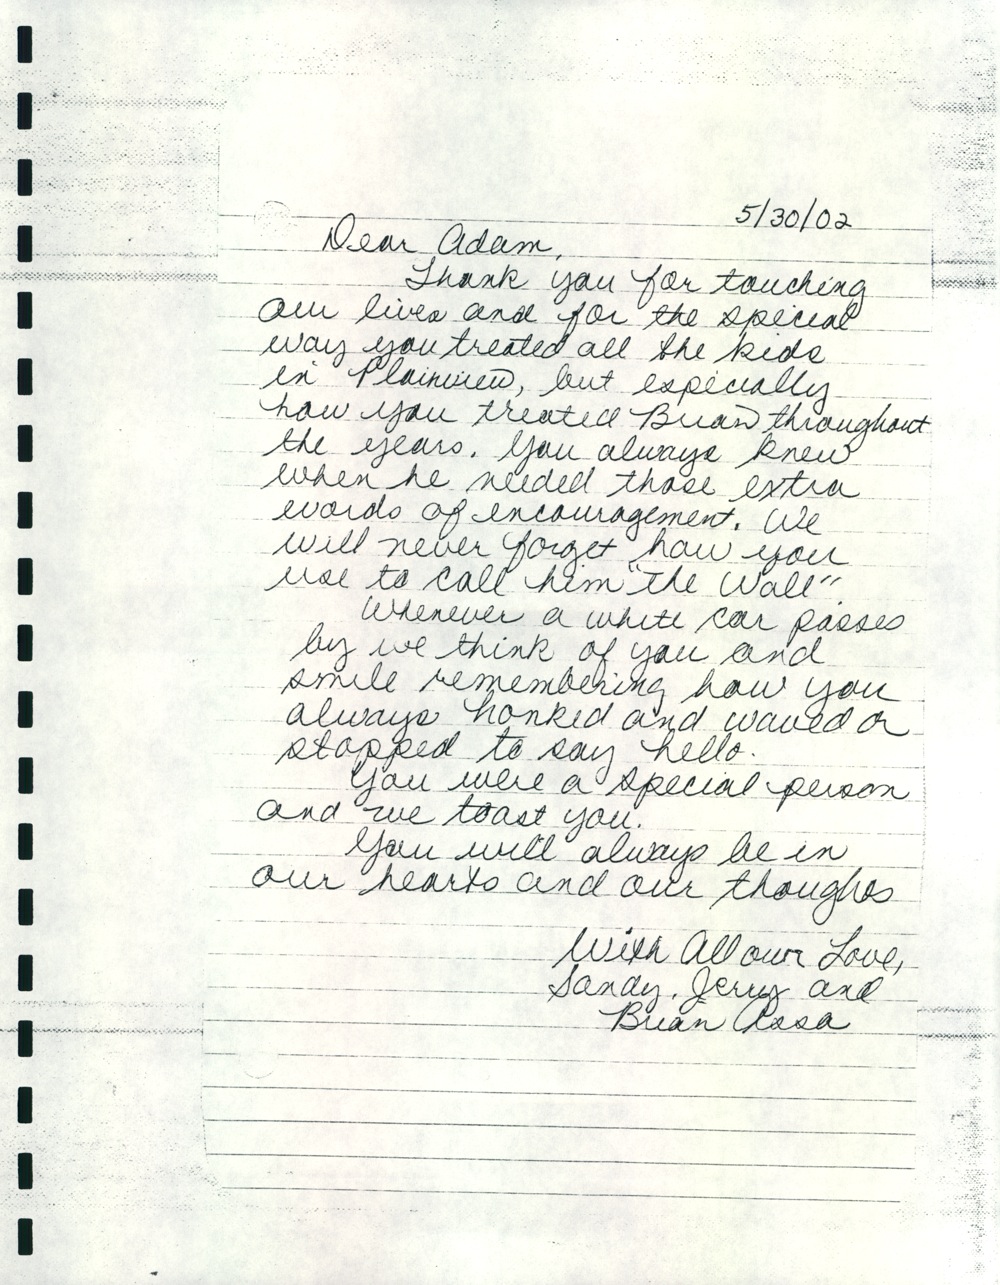 5/30/02
Dear Adam,
Thank you for touching
our lives and for the special
way you treated all the kids
in Plainview, but especially
how you treated Brian throughout
the years. You always knew
when he needed those extra
words of encouragement. We
will never forget how you
use to call him "The Wall".
Whenever a white car passes
by we think of you and
smile remembering how you
always honked and waved or
stopped to say hello.
You were a special person
and we toast you.
You will always be in
our hearts and our thoughts
With All our Love,
Sandy, Jerry and
Brian Assa